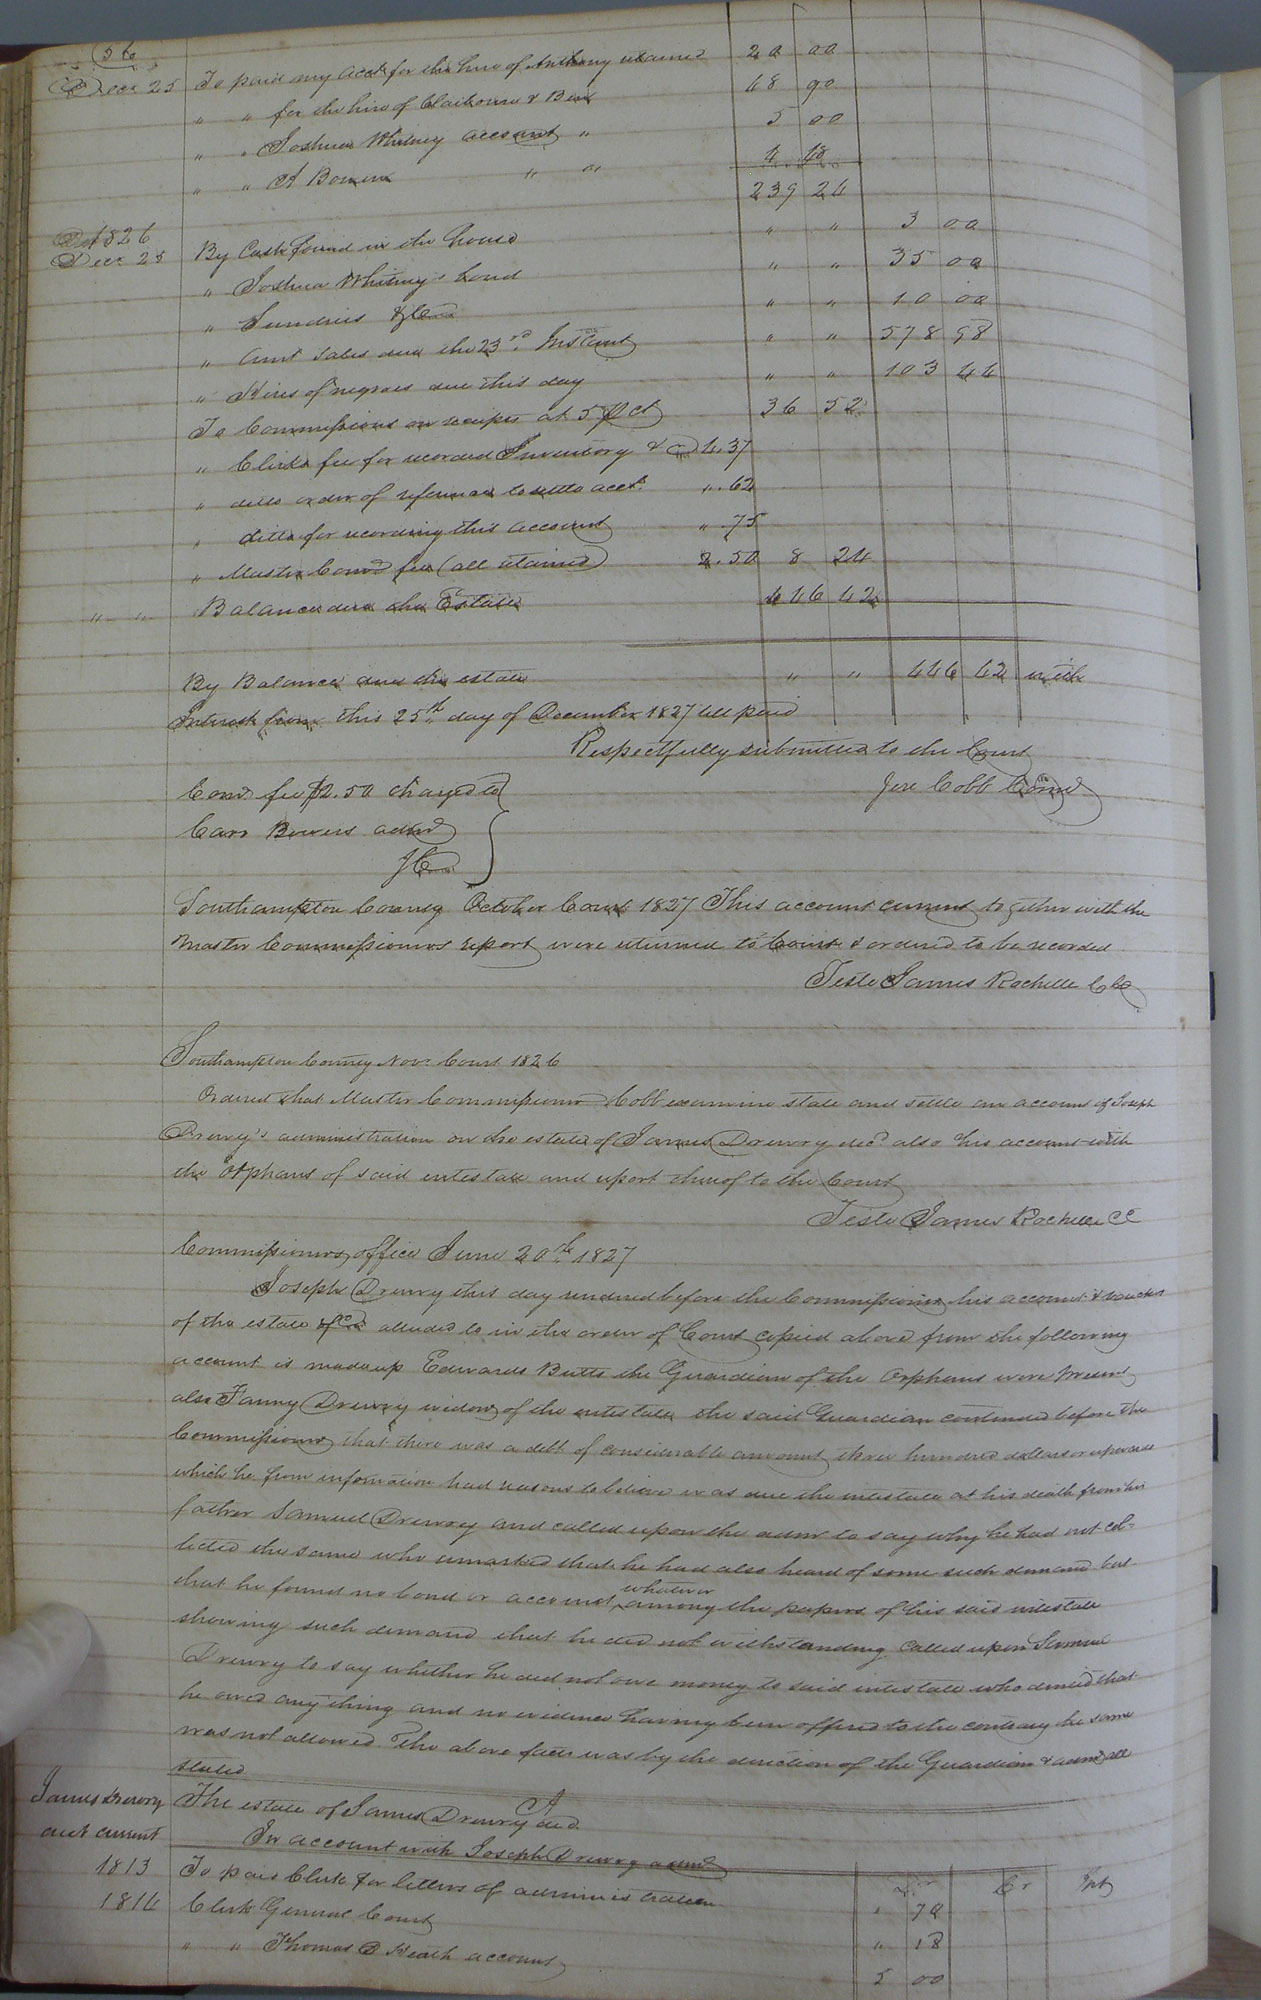 56
Decr 25 To paid my acct for the hire of Anthony retained 20 00
" " for the hire of Claiborne & Ben 48 90
" " Joshua Whitney account " 5 00
" " A Bowers " " 4 18
239 24
1826
Decr 25 By Cash found in the house " " 3 00
" Joshua Whitney's bond " " 35 00
" Sundries " " 10 00
" Amt Sales due the 23rd Instant " " 578 98
" Hires of negroes due this day " " 103 44
To Commissions on receipts at 5 pct 36 52
" Clerks fee for recorded Inventory & 4.37
" ditto order of reference to settle acct. ". 62
" ditto for recording this account ". 75
" Master Comrs fee (all retained) 2.50 8 24
" " Balance due the Estate 446 42
By Balance due the estate " " 446 42 with
Interest from this 25th day of December 1827 till paid
Respectfully submitted to the Court
Jere Cobb Comr
Comr fee $2.50 charged to
Carr Bowers admr
JC
Southampton County October Court 1827 This account current together with the
Master Commissioners report were returned to Court & ordered to be recorded
Teste James Rochelle CC
Southampton County Novr Court 1826
Ordered that Master Commissioner Cobb examine state and settle an account of Joseph
Drewry's administration on the estate of James Drewry decd also his account with
the Orphans of said intestate and report thereof to the Court
Teste James Rochelle CC
Commissioners office June 20th 1827
Joseph Drewry this day rendered before the Commissioner his account & vouchers
of the estate alluded to in the order of Court copied above from the following
account is made up Edwards Butts the Guardian of the Orphans were present
also Fanny Drewry widow of the intestate the said Guardian contended before the
Commissioner that there was a debt of considerable amount three hundred dollars or upwards
which he from information had reasons to believe was due the intestate at his death from his
father Samuel Drewry and called upon the admr to say why he had not col-
lected the same who remarked that he had also heard of some such demand but
that he found no bond or account whatever among the papers of his said intestate
shewing such demand that he did notwithstanding called upon Samuel
Drewry to say whether he did not owe money to said intestate who denied that
he owed any thing and no evidence having been offered to the contrary the same
was not allowed. The above facts was by the direction of the Guardian & admr all
stated
A
James Drewry The estate of James Drewry decd.
acct current In account with Joseph Drewry admr
Dr Cr Int
1813 To paid Clerk for letters of administration " 70
1814 Clerk General Court " 18
" " Thomas B Heath account 5 00